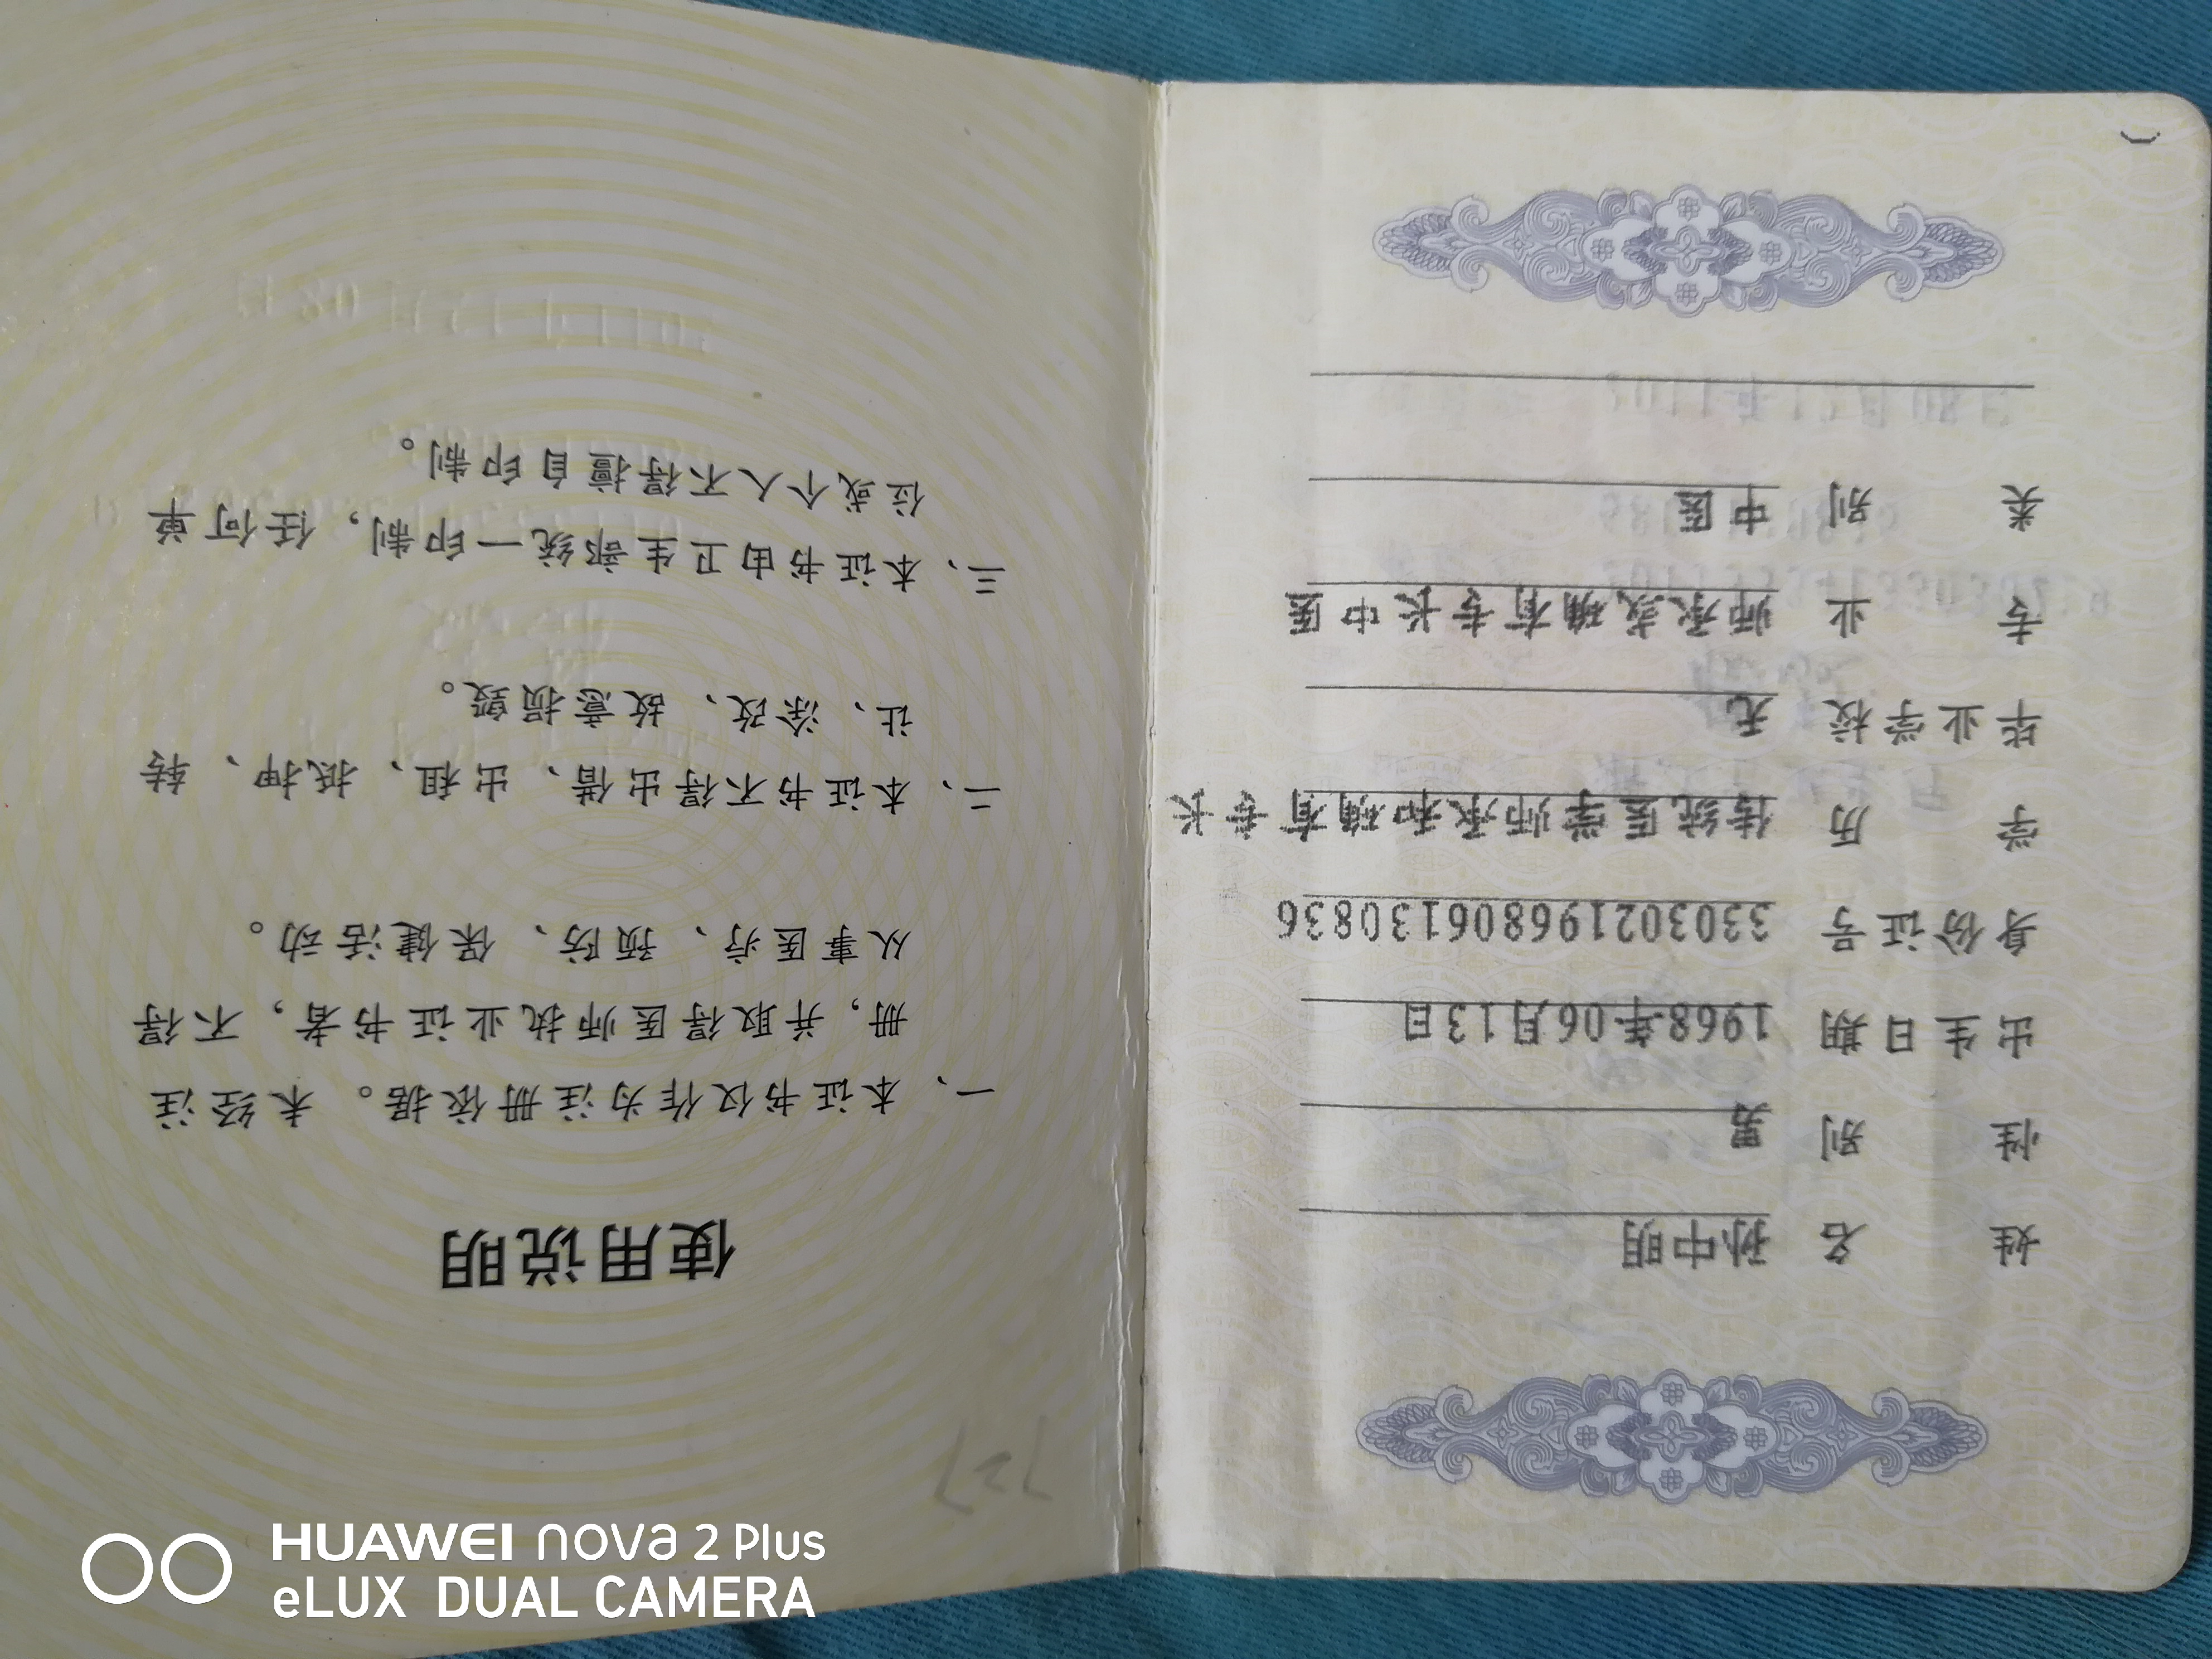 姓名 孙中明
性别 男
出生日期 1968年06月13日
身份证号 330302196806130836
学历 传统医学师承和确有专长
毕业学校 无
专业 师承或确有专长中医
类别 中医
使用说明
一、本证书仅作为注册依据。未经注
册，并取得医师执业证书者，不得
从事医疗、预防、保健活动。
二、本证书不得出借、出租、抵押、转
让、涂改、故意损毁。
三、本证书由卫生部统一印制，任何单
位或个人不得擅自印制。
727
HUAWEI nova 2 Plus
eLUX DUAL CAMERA